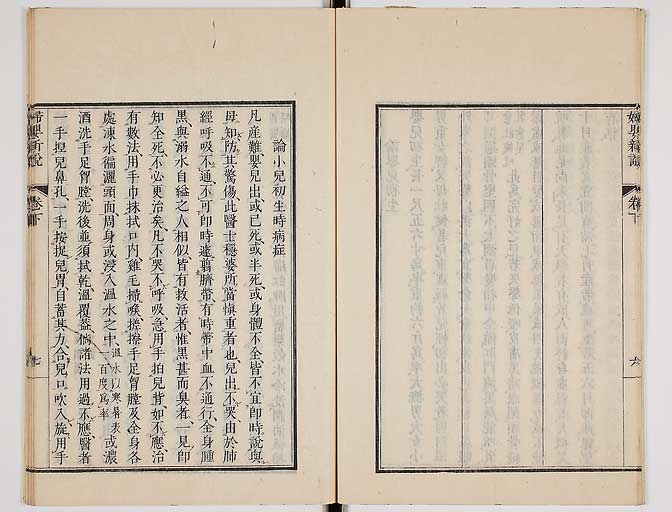 婦嬰新說
卷下
六
論小兒初生時病症
凡產難嬰兒出或已死或半死或身體不全皆不宜卽時說與
母知防其驚傷此醫士穩婆所當慎重者也兒出不哭由於肺
經呼吸不通不可卽時速翦臍帶有時帶中血不通行全身腫
黑與溺水自縊之人相似皆有救活者惟黑甚而臭者一見卽
知全死不必更治矣凡不哭不呼吸急用手拍兒背如不應治
有數法用手巾抹拭口內雞毛撩喉搓擦手足胷膛及全身各
處凍水徧灑頭面周身或浸入溫水之中溫水以寒暑表一百度爲率或濃
酒洗手足胷膛洗後並須拭乾溫覆蓋倘諸法用過不應醫者
一手揑兒鼻孔一手按捉兒胃自蓄其力合兒口吹入旋用手
婦嬰新說
卷下
七